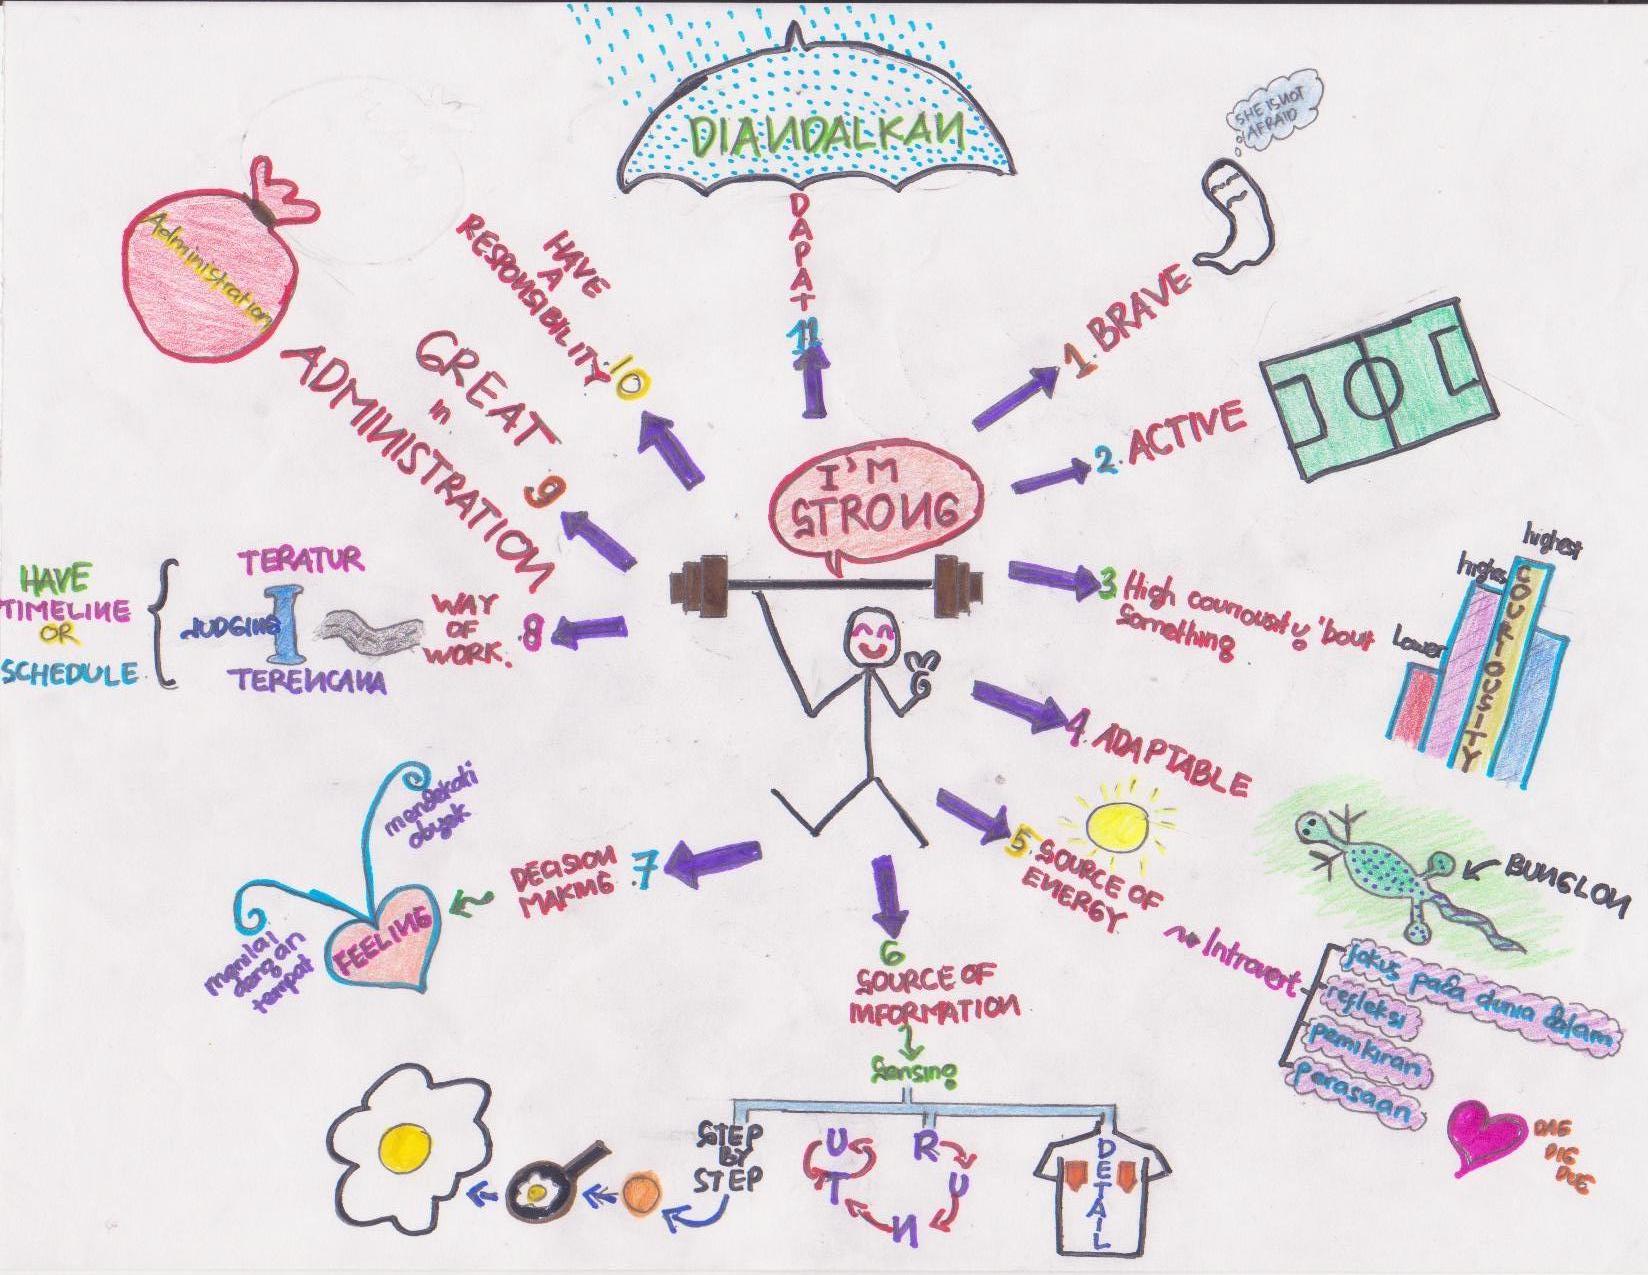 DIANDALKAN
DAPAT
11
SHE IS NOT
AFRAID
1. BRAVE
2. ACTIVE
3 High couriousity 'bout
something
Lower
highes
highest
COURIOUSITY
4. ADAPTABLE
BUNGLON
5. SOURCE OF
ENERGY
Introvert
fokus pada dunia dalam
refleksi
pemikiran
perasaan
DAG
DIG
DUG
6
SOURCE OF
INFORMATION
Sensing
STEP
BY
STEP
R
U
N
T
U
DETAIL
7.
DECISION
MAKING
FEELING
mendekati
obyek
menilai
dengan
tempat
8.
WAY
OF
WORK.
TERATUR
JUDGING
TERENCANA
HAVE
TIMELINE
OR
SCHEDULE
9
GREAT
in
ADMINISTRATION
Administration
10
HAVE
A
RESPONSIBILITY
I'M
STRONG